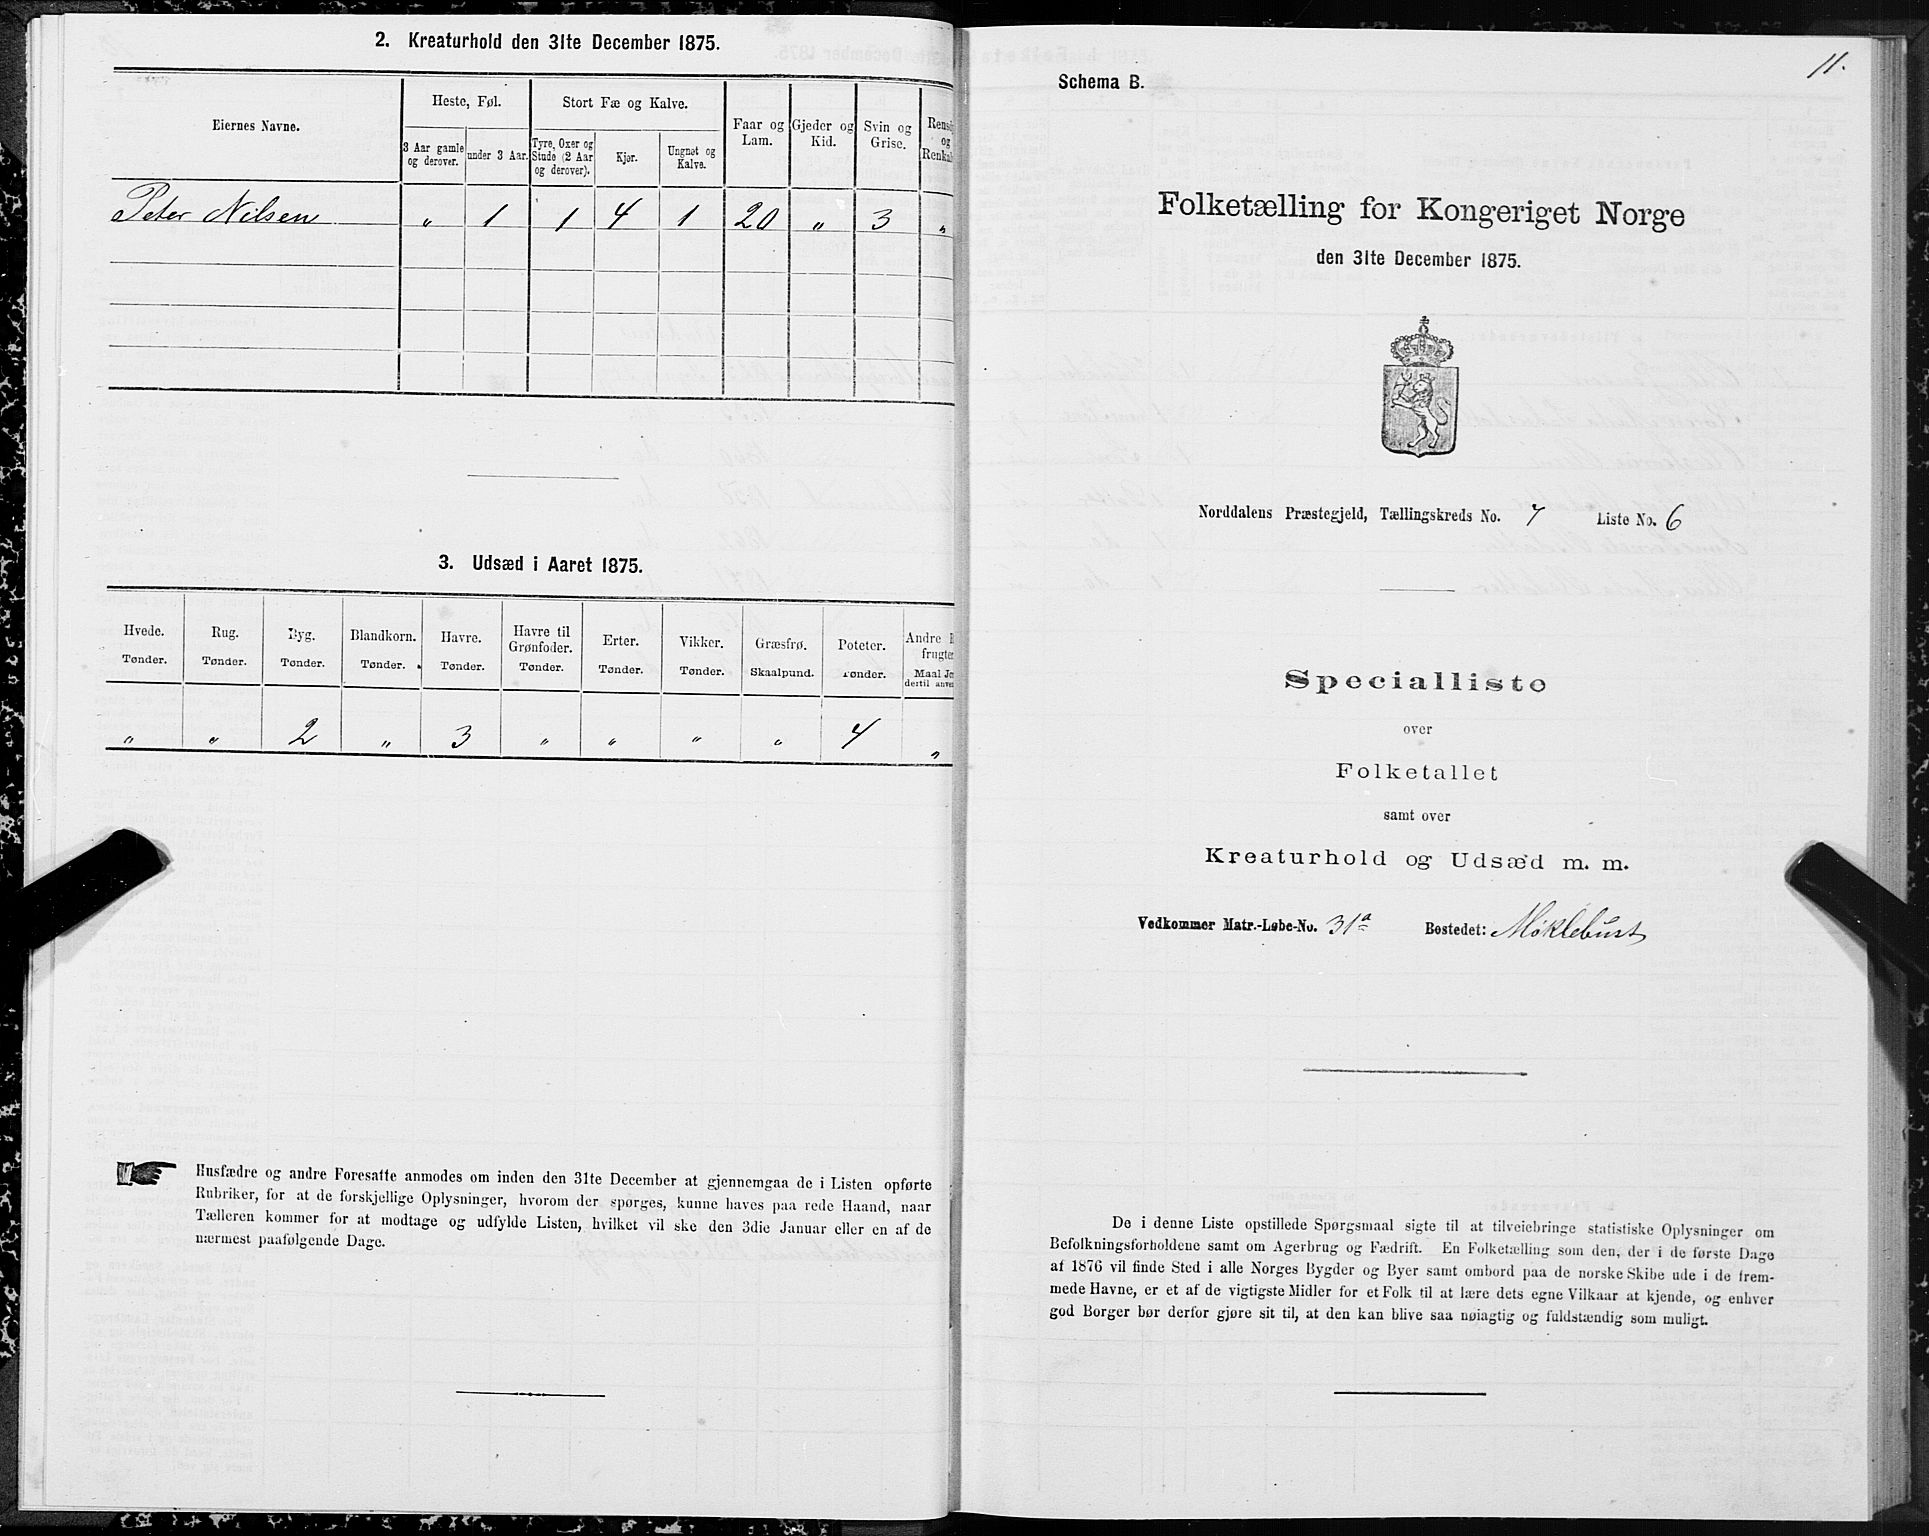 2. Kreaturhold den 31te December 1875.
Eiernes Navne.
Heste, Føl.
Stort Fæ og Kalve.
Faar og Lam.
Gjeder og Kid.
Svin og Grise.
og
3 Aar gamle og derover.
under 3 Aar.
Tyre, Oxer og Stude (2 Aar og derover).
Kjør.
Ungnøt og Kalve.
Peter Nilsen " 1 1 4 1 20 " 3 "
3. Udsæd i Aaret 1875.
Hvede. Rug. Byg. Blandkorn. Havre. Havre til Grønfoder. Erter. Vikker. Græsfrø. Poteter. Andre
Tønder. Tønder. Tønder. Tønder. Tønder. Tønder. Tønder. Tønder. Skaalpund. Tønder. Maal
" " 2 " 3 " " " " 4 "
Husfædre og andre Foresatte anmodes om inden den 31te December at gjennemgaa de i Listen opførte
Rubriker, for at de forskjellige Oplysninger, hvorom der spørges, kunne haves paa rede Haand, naar
Tælleren kommer for at modtage og udfylde Listen, hvilket vil ske den 3die Januar eller en af de
nærmest paafølgende Dage.
11.
Schema B.
Folketælling for Kongeriget Norge
den 31te December 1875.
Norddalens Præstegjeld, Tællingskreds No. 7 Liste No. 6
Specialliste
over
Folketallet
samt over
Kreaturhold og Udsæd m. m.
Vedkommer Matr.-Løbe-No. 31a Bostedet: Møklebust
De i denne Liste opstillede Spørgsmaal sigte til at tilveiebringe statistiske Oplysninger om
Befolkningsforholdene samt om Agerbrug og Fædrift. En Folketælling som den, der i de første Dage
af 1876 vil finde Sted i alle Norges Bygder og Byer samt ombord paa de norske Skibe ude i de frem-
mede Havne, er et af de vigtigste Midler for et Folk til at lære dets egne Vilkaar at kjende, og enhver
god Borger bør derfor gjøre sit til, at den kan blive saa nøiagtig og fuldstændig som muligt.